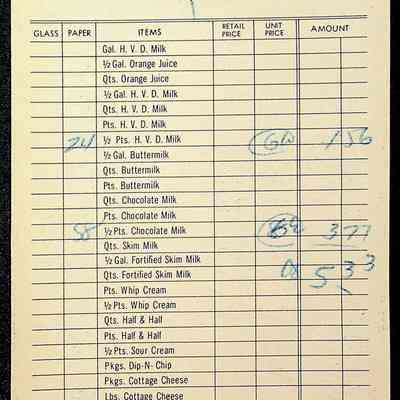 GLASS PAPER ITEMS RETAIL PRICE UNIT PRICE AMOUNT
Gal. H. V. D. Milk
½ Gal. Orange Juice
Qts. Orange Juice
½ Gal. H. V. D. Milk
Qts. H. V. D. Milk
Pts. H. V. D. Milk
24 ½ Pts. H. V. D. Milk 156
½ Gal. Buttermilk
Qts. Buttermilk
Pts. Buttermilk
Qts. Chocolate Milk
Pts. Chocolate Milk
58 ½ Pts. Chocolate Milk 377
Qts. Skim Milk
½ Gal. Fortified Skim Milk 533
Qts. Fortified Skim Milk
Pts. Whip Cream
½ Pts. Whip Cream
Qts. Half & Half
Pts. Half & Half
½ Pts. Sour Cream
Pkgs. Dip-N- Chip
Pkgs. Cottage Cheese
Lbs. Cottage Cheese